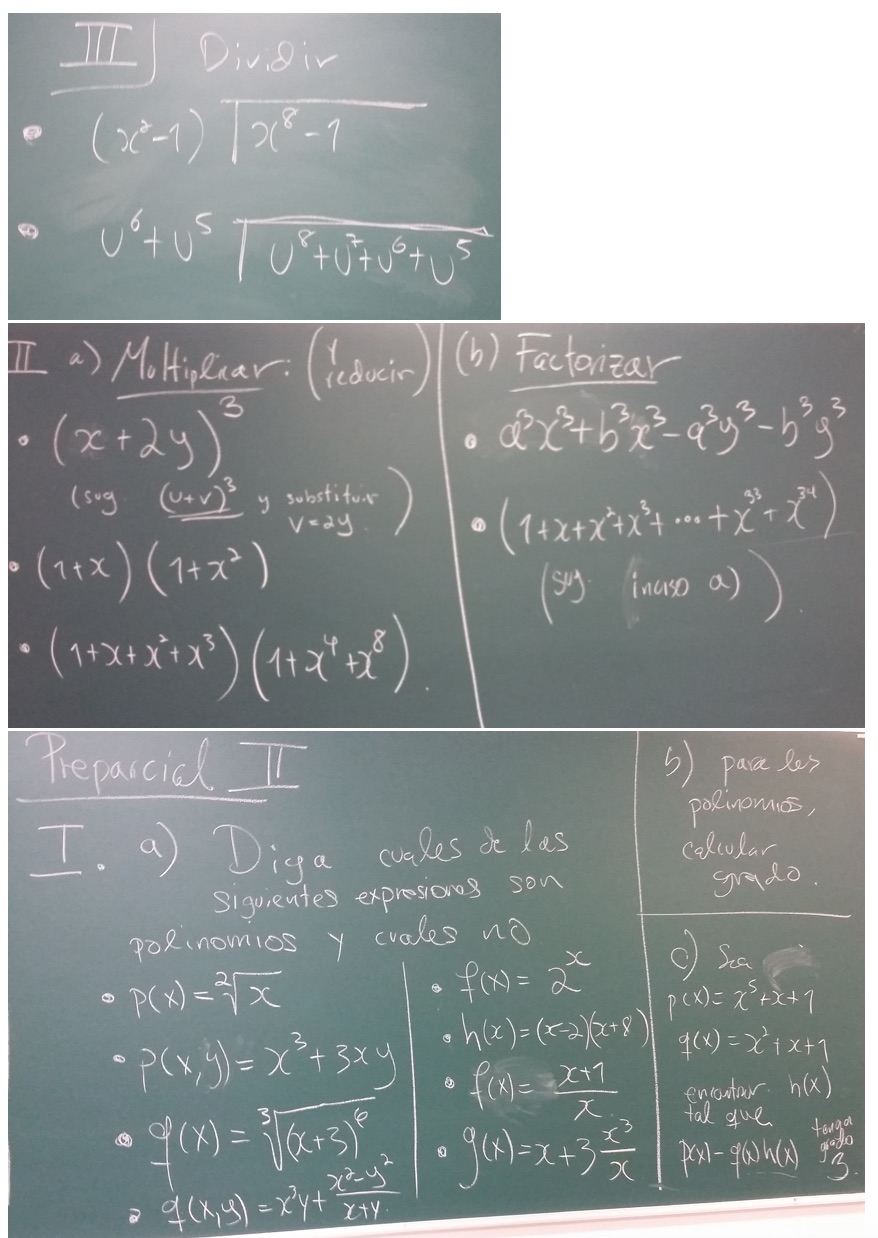 III Dividir
• (x²-1) | x⁸-1
• U⁶+U⁵ | U⁸+U⁷+U⁶+U⁵
II a) Multiplicar: (y reducir)
• (x+2y)³
(sug. (u+v)³ y substituir
v=2y.)
• (1+x)(1+x²)
• (1+x+x²+x³)(1+x⁴+x⁸).
(b) Factorizar
• a³x³+b³x³-a³y³-b³y³
• (1+x+x²+x³+...+x³³+x³⁴)
(sug. inciso a)).
Preparcial II
I. a) Diga cuales de las
siguientes expresiones son
polinomios y cuales no
• p(x)=²√x
• p(x,y)=x³+3xy
• q(x)=³√(x+3)⁶
• q(x,y)=x³y+(x²-y²)/(x+y).
• f(x)=2ˣ
• h(x)=(x-2)(x+8)
• f(x)=(x+1)/x.
• g(x)=x+3 x³/x
b) para los
polinomios,
calcular
grado.
c) Sea
p(x)=x⁵+x+1
q(x)=x²+x+1
encontrar h(x)
tal que
p(x)-q(x)h(x) tenga grado 3.